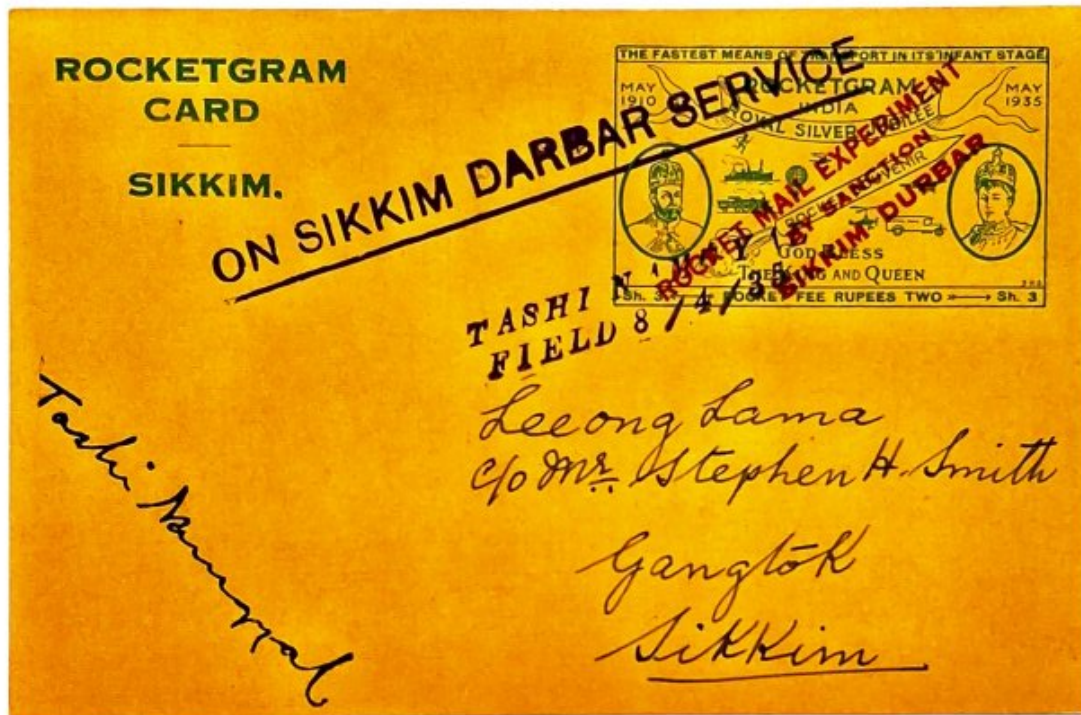 ROCKETGRAM
CARD
SIKKIM.
ON SIKKIM DARBAR SERVICE
THE FASTEST MEANS OF TRANSPORT IN ITS INFANT STAGE
MAY
1910
ROCKETGRAM
INDIA
ROYAL SILVER JUBILEE
MAY
1935
ROCKET MAIL EXPERIMENT
BY SANCTION
SIKKIM DURBAR
GOD BLESS
THE KING AND QUEEN
Sh. 3 ROCKET FEE RUPEES TWO Sh. 3
TASHI
FIELD 8/4/35
Leeong Lama
c/o Mr. Stephen H. Smith
Gangtōk
Sikkim
Tashi Namgyal